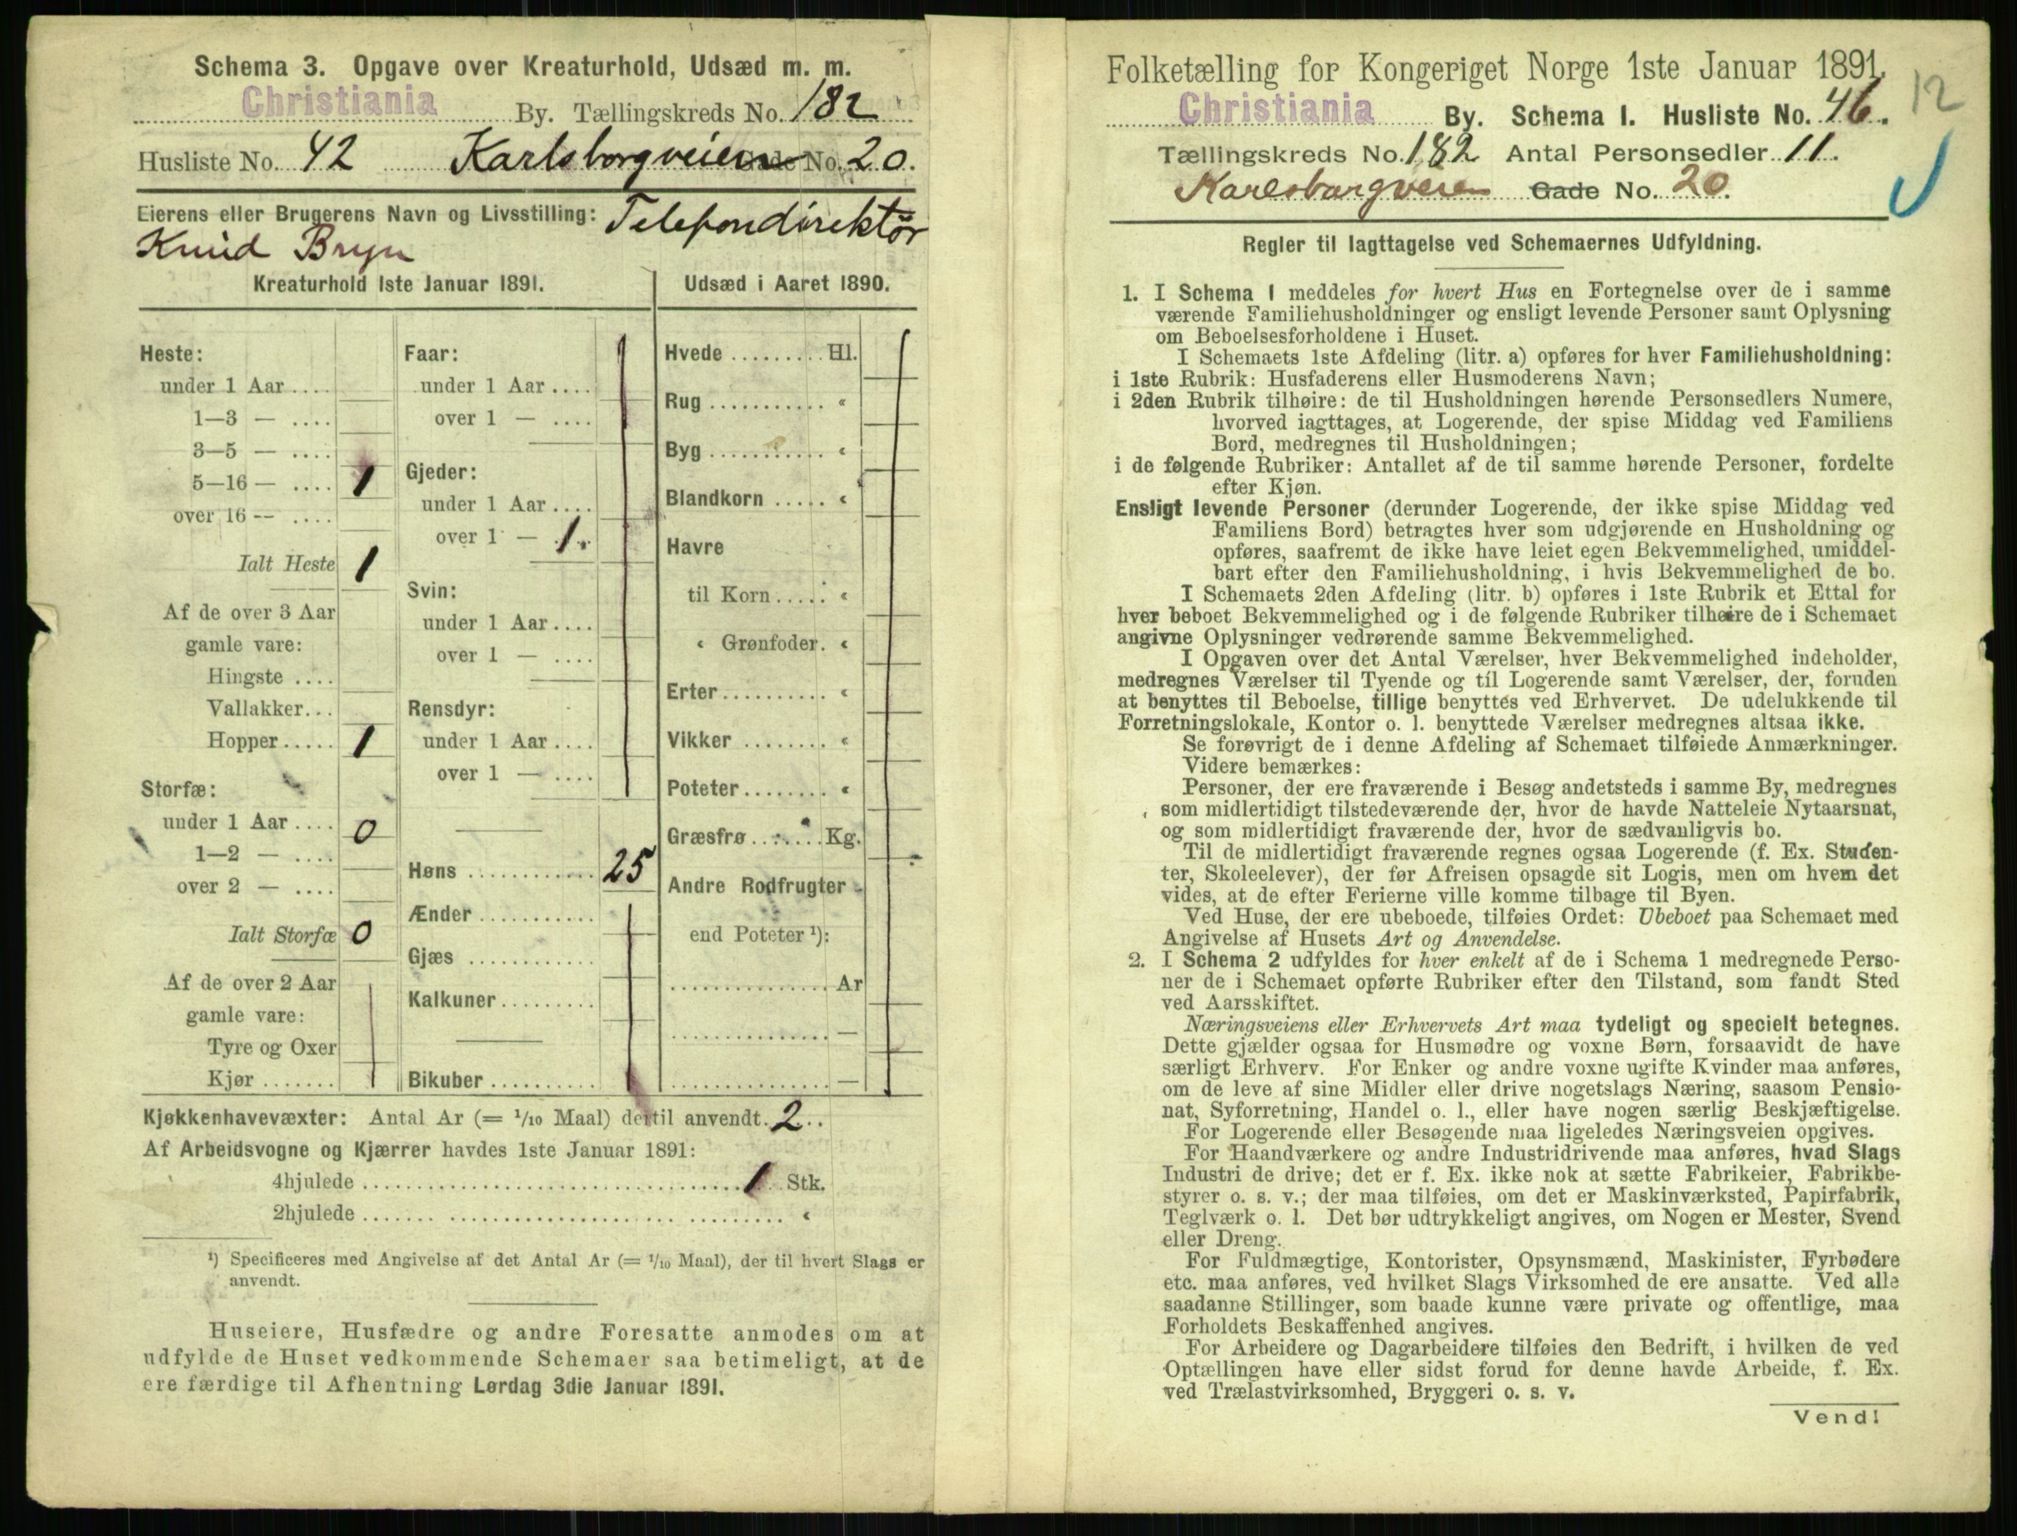 Schema 3. Opgave over Kreaturhold, Udsæd m. m.
Christiania By. Tællingskreds No. 182
Husliste No. 42 Karlsborgveien Gade No. 20.
Eierens eller Brugerens Navn og Livsstilling: Telefondirektør
Knud Bryn
Kreaturhold 1ste Januar 1891.
Heste:
under 1 Aar ....
1—3 — ....
3—5 — ....
5—16 — .... 1
over 16 — ....
Ialt Heste 1
Af de over 3 Aar
gamle vare:
Hingste ....
Vallakker...
Hopper..... 1
Storfæ:
under 1 Aar .... 0
1—2 — ....
over 2 — ....
Ialt Storfæ 0
Af de over 2 Aar
gamle vare:
Tyre og Oxer
Kjør.......
Faar:
under 1 Aar ....
over 1 — ....
Gjeder:
under 1 Aar ....
over 1 — 1.
Svin:
under 1 Aar ....
over 1 — ....
Rensdyr:
under 1 Aar ....
over 1 — ....
Høns ............ 25
Ænder ...........
Gjæs ............
Kalkuner.........
Bikuber ..........
Udsæd i Aaret 1890.
Hvede ......... Hl.
Rug ........... «
Byg ........... «
Blandkorn ..... «
Havre
til Korn ...... «
« Grønfoder. «
Erter.......... «
Vikker ........ «
Poteter........ «
Græsfrø ....... Kg.
Andre Rodfrugter
end Poteter ¹):
............... Ar
............... —
............... —
Kjøkkenhavevæxter: Antal Ar (= 1/10 Maal) dertil anvendt. 2..
Af Arbeidsvogne og Kjærrer havdes 1ste Januar 1891:
4hjulede ........................... 1 Stk.
2hjulede ........................... «
¹) Specificeres med Angivelse af det Antal Ar (= 1/10 Maal), der til hvert Slags er
anvendt.
Huseiere, Husfædre og andre Foresatte anmodes om at
udfylde de Huset vedkommende Schemaer saa betimeligt, at de
ere færdige til Afhentning Lørdag 3die Januar 1891.
Folketælling for Kongeriget Norge 1ste Januar 1891.
12
Christiania By. Schema I. Husliste No. 46.
Tællingskreds No. 182 Antal Personsedler 11.
Karlsborgveien Gade No. 20.
Regler til Iagttagelse ved Schemaernes Udfyldning.
1. I Schema I meddeles for hvert Hus en Fortegnelse over de i samme
værende Familiehusholdninger og ensligt levende Personer samt Oplysning
om Beboelsesforholdene i Huset.
I Schemaets 1ste Afdeling (litr. a) opføres for hver Familiehusholdning:
i 1ste Rubrik: Husfaderens eller Husmoderens Navn;
i 2den Rubrik tilhøire: de til Husholdningen hørende Personsedlers Numere,
hvorved iagttages, at Logerende, der spise Middag ved Familiens
Bord, medregnes til Husholdningen;
i de følgende Rubriker: Antallet af de til samme hørende Personer, fordelte
efter Kjøn.
Ensligt levende Personer (derunder Logerende, der ikke spise Middag ved
Familiens Bord) betragtes hver som udgjørende en Husholdning og
opføres, saafremt de ikke have leiet egen Bekvemmelighed, umiddel-
bart efter den Familiehusholdning, i hvis Bekvemmelighed de bo.
I Schemaets 2den Afdeling (litr. b) opføres i 1ste Rubrik et Ettal for
hver beboet Bekvemmelighed og i de følgende Rubriker tilhøire de i Schemaet
angivne Oplysninger vedrørende samme Bekvemmelighed.
I Opgaven over det Antal Værelser, hver Bekvemmelighed indeholder,
medregnes Værelser til Tyende og til Logerende samt Værelser, der, foruden
at benyttes til Beboelse, tillige benyttes ved Erhvervet. De udelukkende til
Forretningslokale, Kontor o. l. benyttede Værelser medregnes altsaa ikke.
Se forøvrigt de i denne Afdeling af Schemaet tilføiede Anmærkninger.
Videre bemærkes:
Personer, der ere fraværende i Besøg andetsteds i samme By, medregnes
som midlertidigt tilstedeværende der, hvor de havde Natteleie Nytaarsnat,
og som midlertidigt fraværende der, hvor de sædvanligvis bo.
Til de midlertidigt fraværende regnes ogsaa Logerende (f. Ex. Studen-
ter, Skoleelever), der før Afreisen opsagde sit Logis, men om hvem det
vides, at de efter Ferierne ville komme tilbage til Byen.
Ved Huse, der ere ubeboede, tilføies Ordet: Ubeboet paa Schemaet med
Angivelse af Husets Art og Anvendelse.
2. I Schema 2 udfyldes for hver enkelt af de i Schema 1 medregnede Perso-
ner de i Schemaet opførte Rubriker efter den Tilstand, som fandt Sted
ved Aarsskiftet.
Næringsveiens eller Erhvervets Art maa tydeligt og specielt betegnes.
Dette gjælder ogsaa for Husmødre og voxne Børn, forsaavidt de have
særligt Erhverv. For Enker og andre voxne ugifte Kvinder maa anføres,
om de leve af sine Midler eller drive nogetslags Næring, saasom Pensio-
nat, Syforretning, Handel o. l., eller have nogen særlig Beskjæftigelse.
For Logerende eller Besøgende maa ligeledes Næringsveien opgives.
For Haandværkere og andre Industridrivende maa anføres, hvad Slags
Industri de drive; det er f. Ex. ikke nok at sætte Fabrikeier, Fabrikbe-
styrer o. s. v.; der maa tilføies, om det er Maskinværksted, Papirfabrik,
Teglværk o. l. Det bør udtrykkeligt angives, om Nogen er Mester, Svend
eller Dreng.
For Fuldmægtige, Kontorister, Opsynsmænd, Maskinister, Fyrbødere
etc. maa anføres, ved hvilket Slags Virksomhed de ere ansatte. Ved alle
saadanne Stillinger, som baade kunne være private og offentlige, maa
Forholdets Beskaffenhed angives.
For Arbeidere og Dagarbeidere tilføies den Bedrift, i hvilken de ved
Optællingen have eller sidst forud for denne havde Arbeide, f. Ex.
ved Trælastvirksomhed, Bryggeri o. s. v.
Vend!